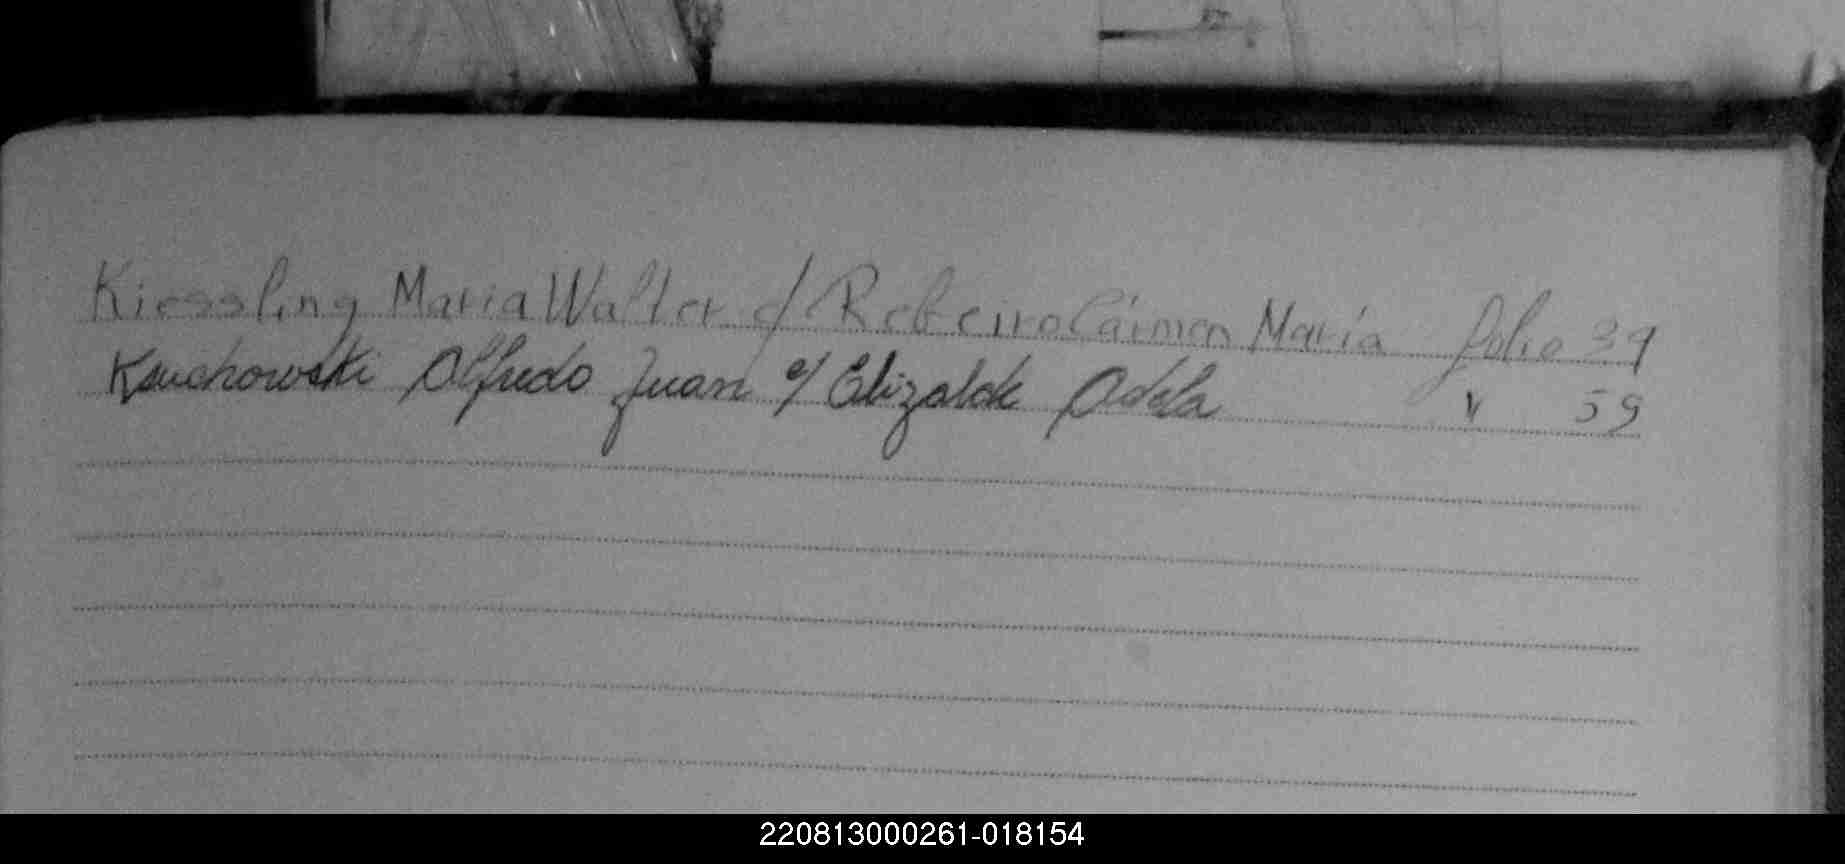 Kiessling Maria Walter c/ Rebeiro Cármen María folio 39
Kauchowski Alfredo Juan c/ Elizalde Adela " 59
220813000261-018154